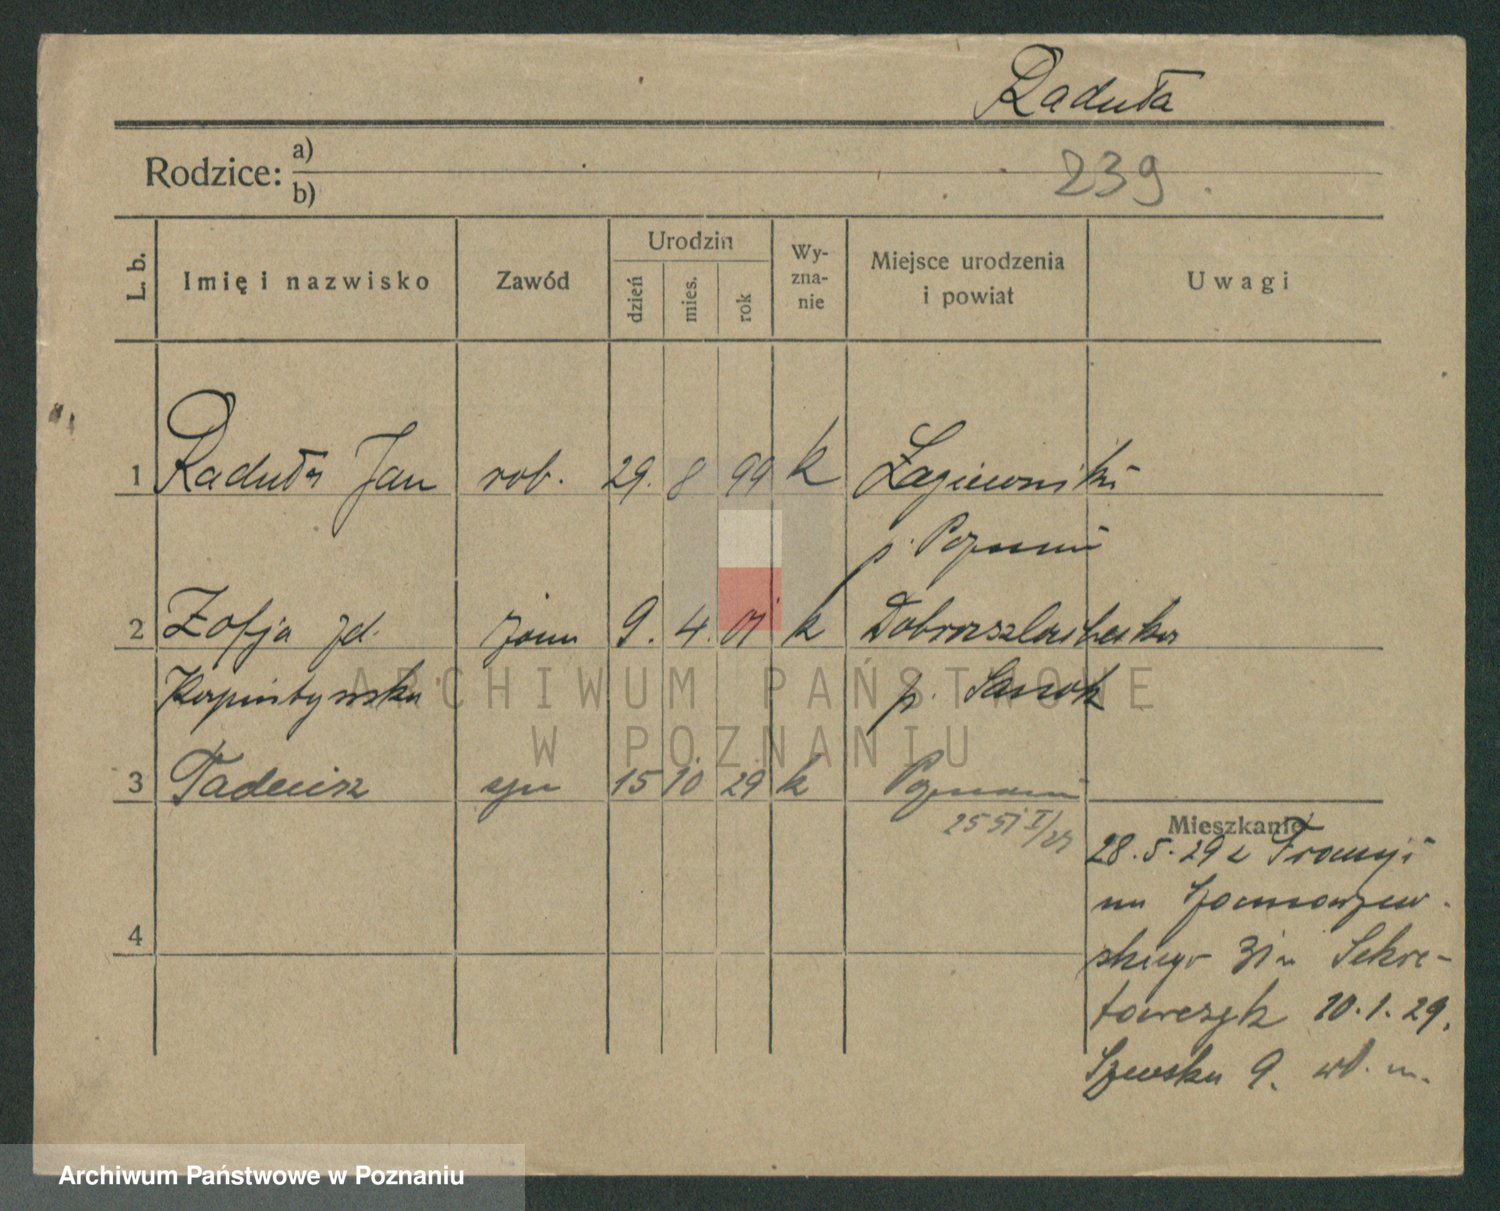 Raduła
Rodzice: a)
b)
239
L. b. Imię i nazwisko Zawód Urodzin dzień mies. rok Wy-zna-nie Miejsce urodzenia i powiat Uwagi
1 Raduła Jan rob. 29. 8 99 k Łagiewniki
p. Poznań
2 Zofja zd. żona 9. 4. 01 k
p. Sanok
3 Tadeusz syn 15 10 29 k Poznań
Mieszkanie
28. 5. 29 z Francji
na
skiego 31 u Sekre-
tarczyk 10. 1. 29.
Szewska 9. wł. m.
4
ARCHIWUM PAŃSTWOWE
W POZNANIU
Archiwum Państwowe w Poznaniu